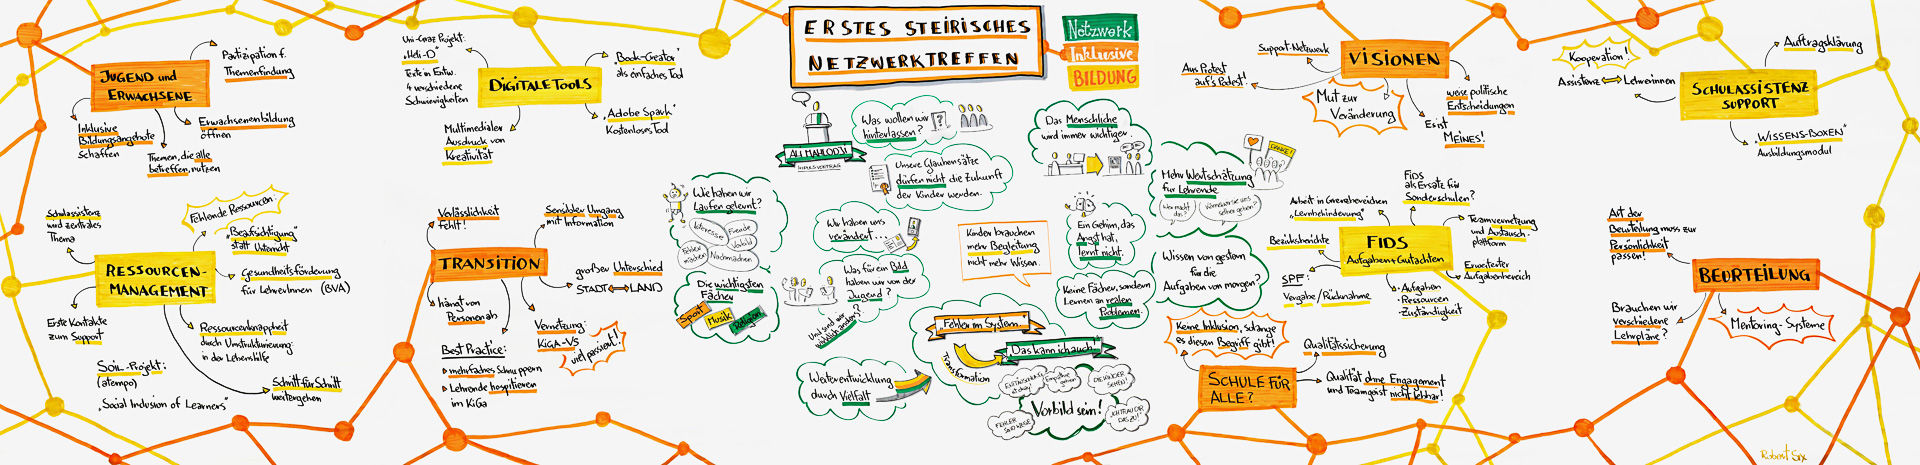 ERSTES STEIRISCHES
NETZWERKTREFFEN
Netzwerk
Inklusive
BILDUNG
JUGEND und
ERWACHSENE
Partizipation f.
Themenfindung
Erwachsenenbildung
öffnen
Themen, die alle
betreffen, nutzen
Inklusive
Bildungsangebote
schaffen
DIGITALE TOOLS
Uni-Graz Projekt:
Texte in Entw.
4 verschiedene
Schwierigkeiten
„Book-Creator"
als einfaches Tool
„Adobe Spark"
Kostenloses Tool
Multimedialer
Ausdruck von
Kreativität
RESSOURCEN-
MANAGEMENT
Schulassistenz
wird zentrales
Thema
Fehlende Ressourcen:
„Beaufsichtigung"
statt Unterricht
Gesundheitsförderung
für LehrerInnen (BVA)
Ressourcenknappheit
durch Umstrukturierung
in der Lebenshilfe
Schritt für Schritt
weitergehen
Erste Kontakte
zum Support
Projekt:
(atempo)
„Social Inclusion of Learners"
TRANSITION
Verlässlichkeit
fehlt!
Sensibler Umgang
mit Information
großer Unterschied
STADT LAND
Vernetzung:
KIGA-VS
viel passiert!
hängt von
Personen ab
Best Practice:
mehrfaches Schnuppern
Lehrende hospitieren
im KiGa
ALI MAHLODJI
IMPULSVORTRAG
Was wollen wir
hinterlassen?
Unsere Glaubenssätze
dürfen nicht die Zukunft
der Kinder werden.
Wie haben wir
Laufen gelernt?
Interesse
Freude
Vorbild
Fehler
machen
Nachmachen
Die wichtigsten
Fächer
Sport
Musik
Religion
Wir haben uns
verändert...
Was für ein Bild
haben wir von der
Jugend?
Und sind wir
wirklich anders?
Weiterentwicklung
durch Vielfalt
Kinder brauchen
mehr Begleitung
nicht mehr Wissen.
„Fehler im System..."
Transformation
Das kann ich auch!
Vorbild sein!
Empathie
geben
DIE KINDER
SEHEN!
„ICH TRAU DIR
DAS ZU!"
FEHLER
SIND WEGE
Das Menschliche
wird immer wichtiger.
Ein Gehirn, das
Angst hat,
lernt nicht.
Keine Fächer, sondern
Lernen an realen
Problemen.
Mehr Wertschätzung
für Lehrende
DANKE!
Wer macht
das?
Können wir uns
selber geben?
Wissen von gestern
für die
Aufgaben von morgen?
VISIONEN
Support-Netzwerk
Aus Protest
auf's Podest!
Mut zur
Veränderung
weise politische
Entscheidungen
Es ist
MEINES!
FIDS
Aufgaben + Gutachten
Arbeit in Grenzbereichen
„Lernbehinderung"
FIDS
als Ersatz für
Sonderschulen?
Teamvernetzung
und Austausch-
plattform
Erweiterter
Aufgabenbereich
Aufgaben
Ressourcen
Zuständigkeit
Bezirksberichte
SPF:
Vergabe/Rücknahme
SCHULE FÜR
ALLE?
Keine Inklusion, solange
es diesen Begriff gibt!
Qualitätssicherung
Qualität ohne Engagement
und Teamgeist nicht lebbar!
SCHULASSISTENZ
SUPPORT
Kooperation!
Assistenz LehrerInnen
Auftragsklärung
„WISSENS-BOXEN"
Ausbildungsmodul
BEURTEILUNG
Art der
Beurteilung muss zur
Persönlichkeit
passen!
Brauchen wir
verschiedene
Lehrpläne?
Mentoring-Systeme
Robert Six